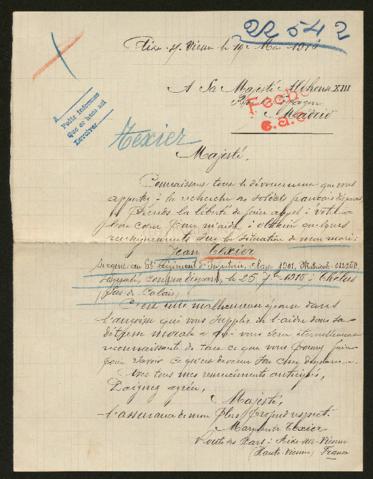 22542
Aixe s/ Vienne le 19 Mai 1916
A Sa Majesté Alphonse XIII
Roi
Madrid
Fecho
Texier
Majesté,
Connaissant tout le dévouement que vous
apportez à la recherche des soldats français disparus
prends la liberté de faire appel à votre
bon cœur pour m'aider à obtenir quelques
renseignements sur la situation de mon mari
Jean Texier
au Régiment d'Infanterie, classe 1901, Matricule
disparu, le 25 1915 à Thélus
(Pas de Calais).
C'est une malheureuse épouse dans
l'angoisse qui vous supplie de l'aider dans sa
détresse morale et qui vous sera éternellement
reconnaissante de tout ce que vous pourrez faire
pour savoir ce qu'est devenu son cher
Avec tous mes remerciements anticipés,
Daignez agréer,
Majesté,
l'assurance de mon plus profond respect
Texier
Aixe-sur-Vienne
(Haute-Vienne) France